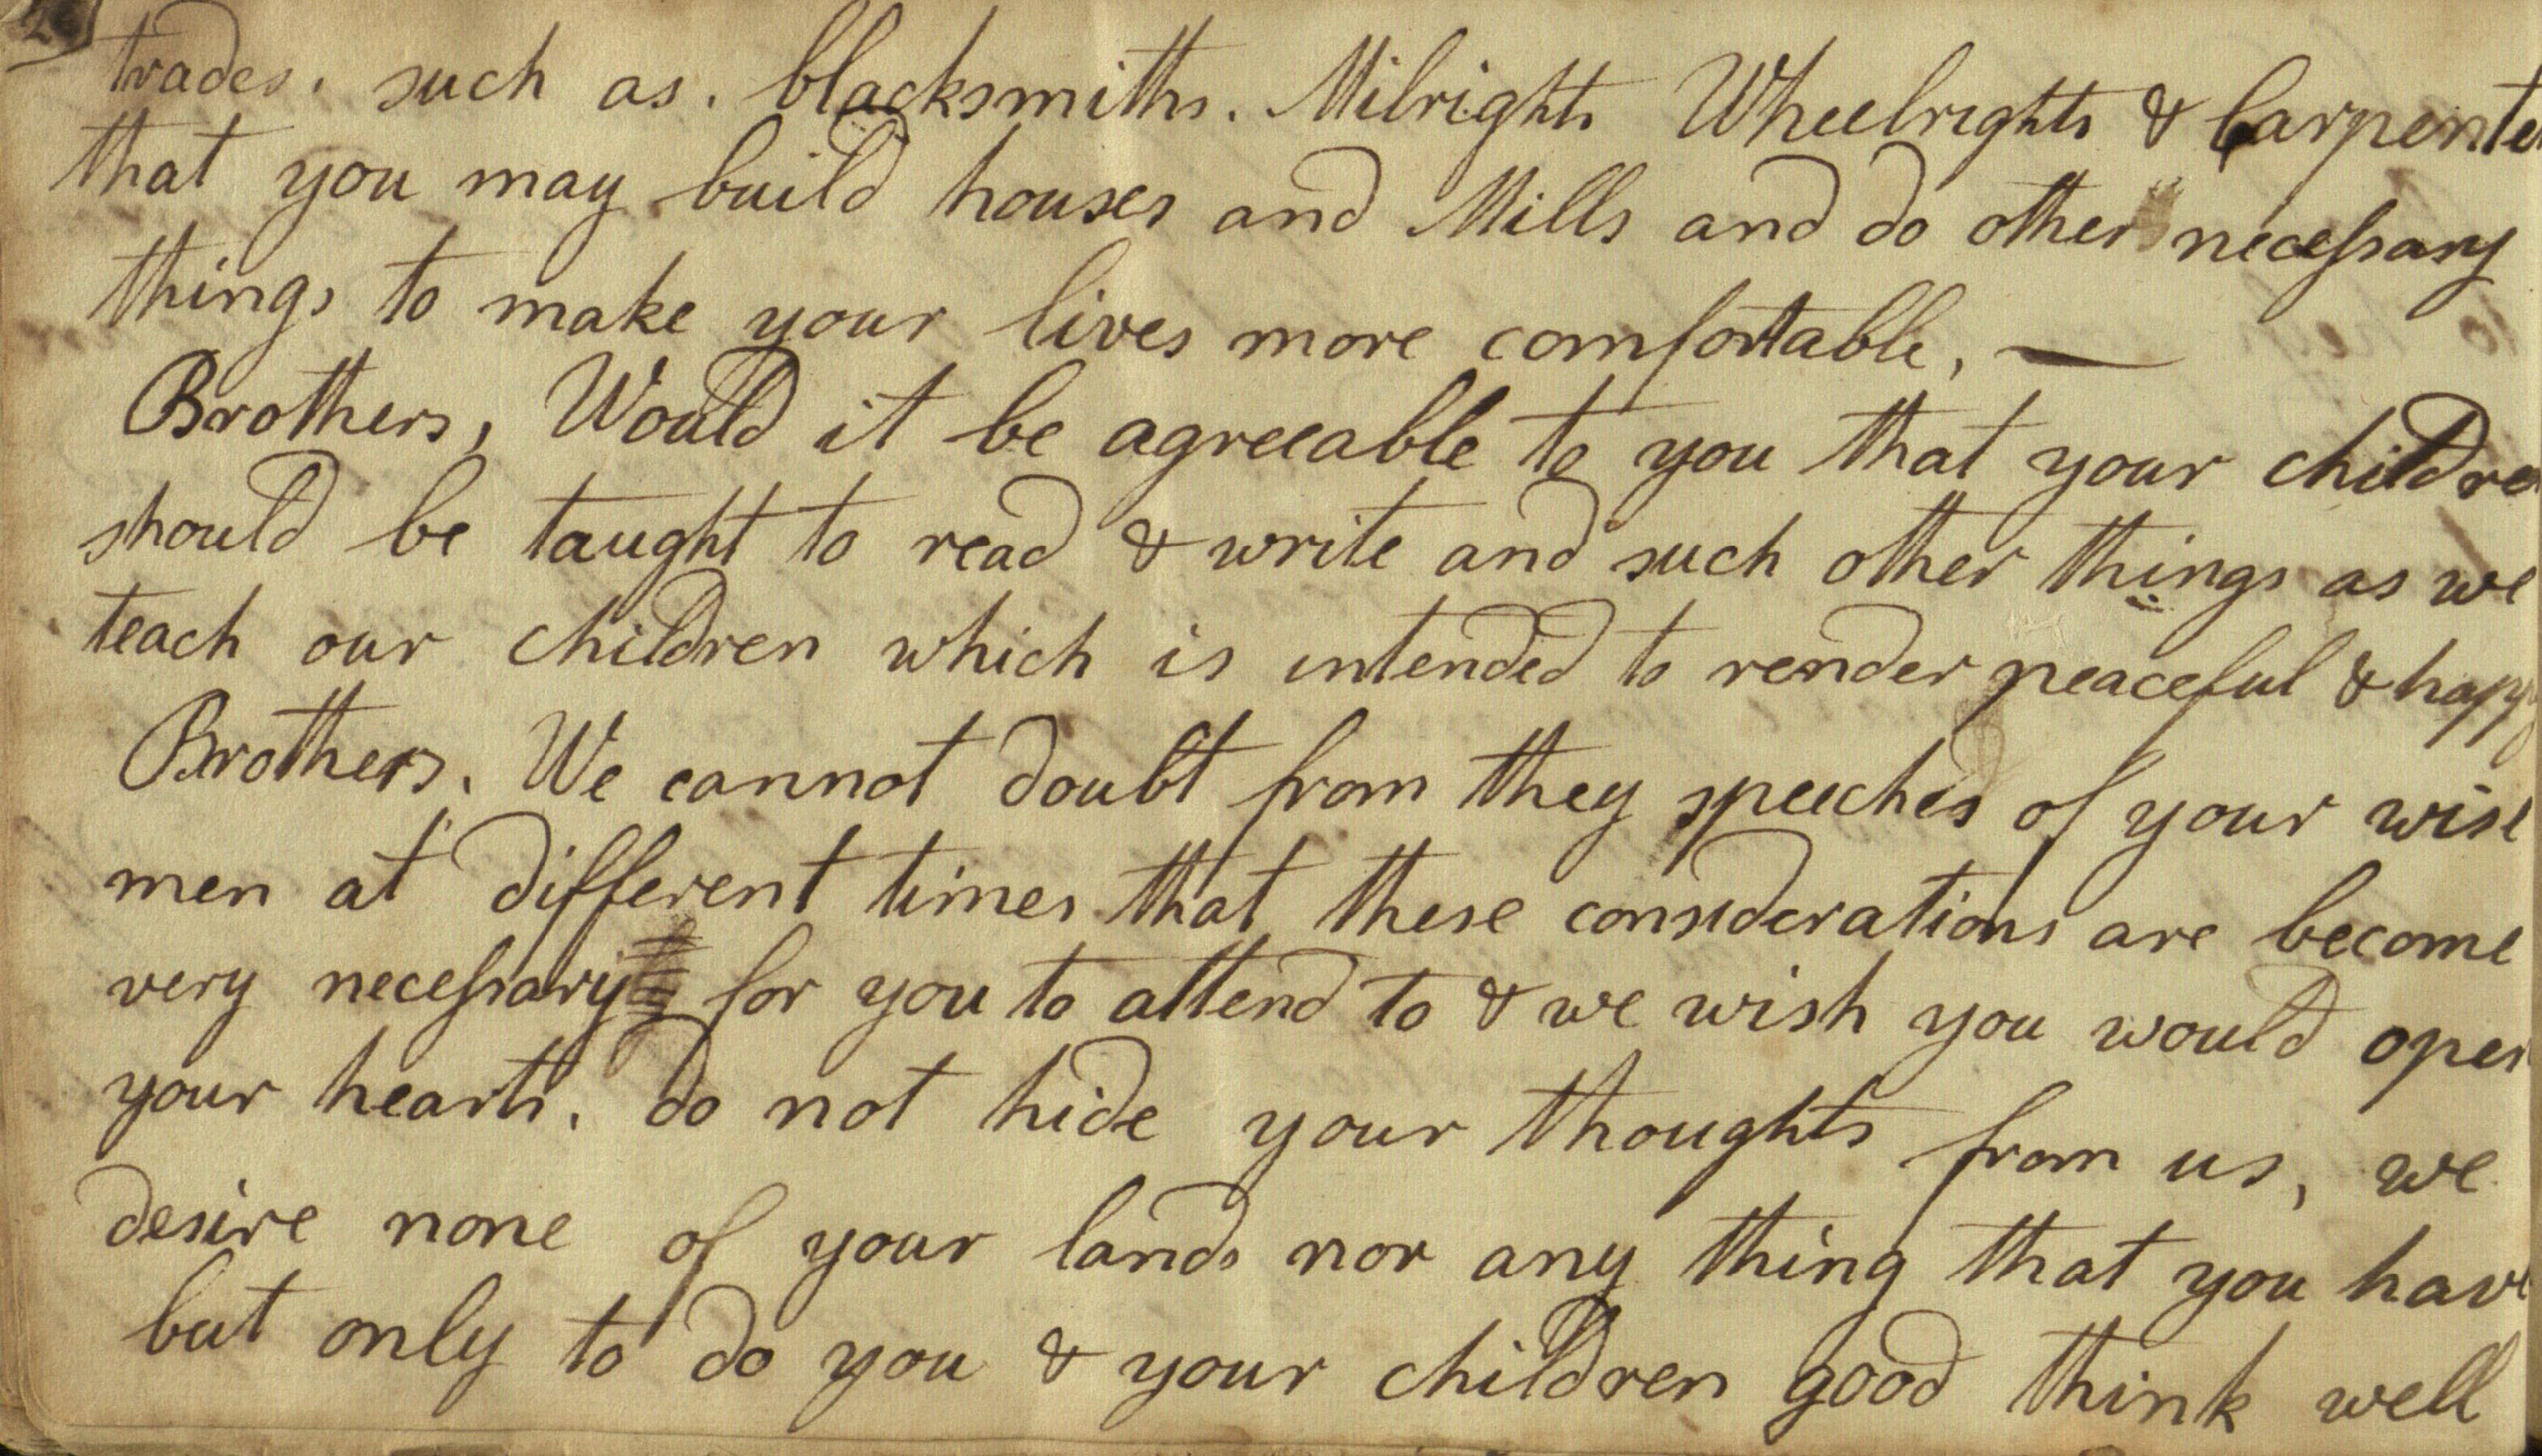 2
trades. such as. blacksmiths. Milrights Wheelrights & Carpente
that you may build houses and Mills and do other necessary
things to make your lives more comfortable, —
Brothers, Would it be agreeable to you that your childre
should be taught to read & write and such other things as we
teach our children which is intended to render peaceful & happy
Brothers. We cannot doubt from they speeches of your wise
men at different times that these considerations are become
very necessary for you to attend to & we wish you would open
your hearts. do not hide your thoughts from us, we
desire none of your lands nor any thing that you have
but only to do you & your children good think well